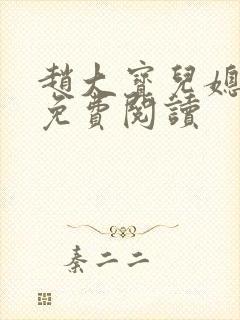 趙大寶兒媳
免費閱讀
秦二二